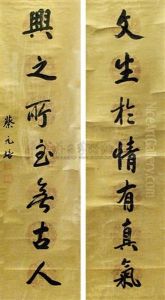 文生於情有真氣
興之所至無古人
蔡元培